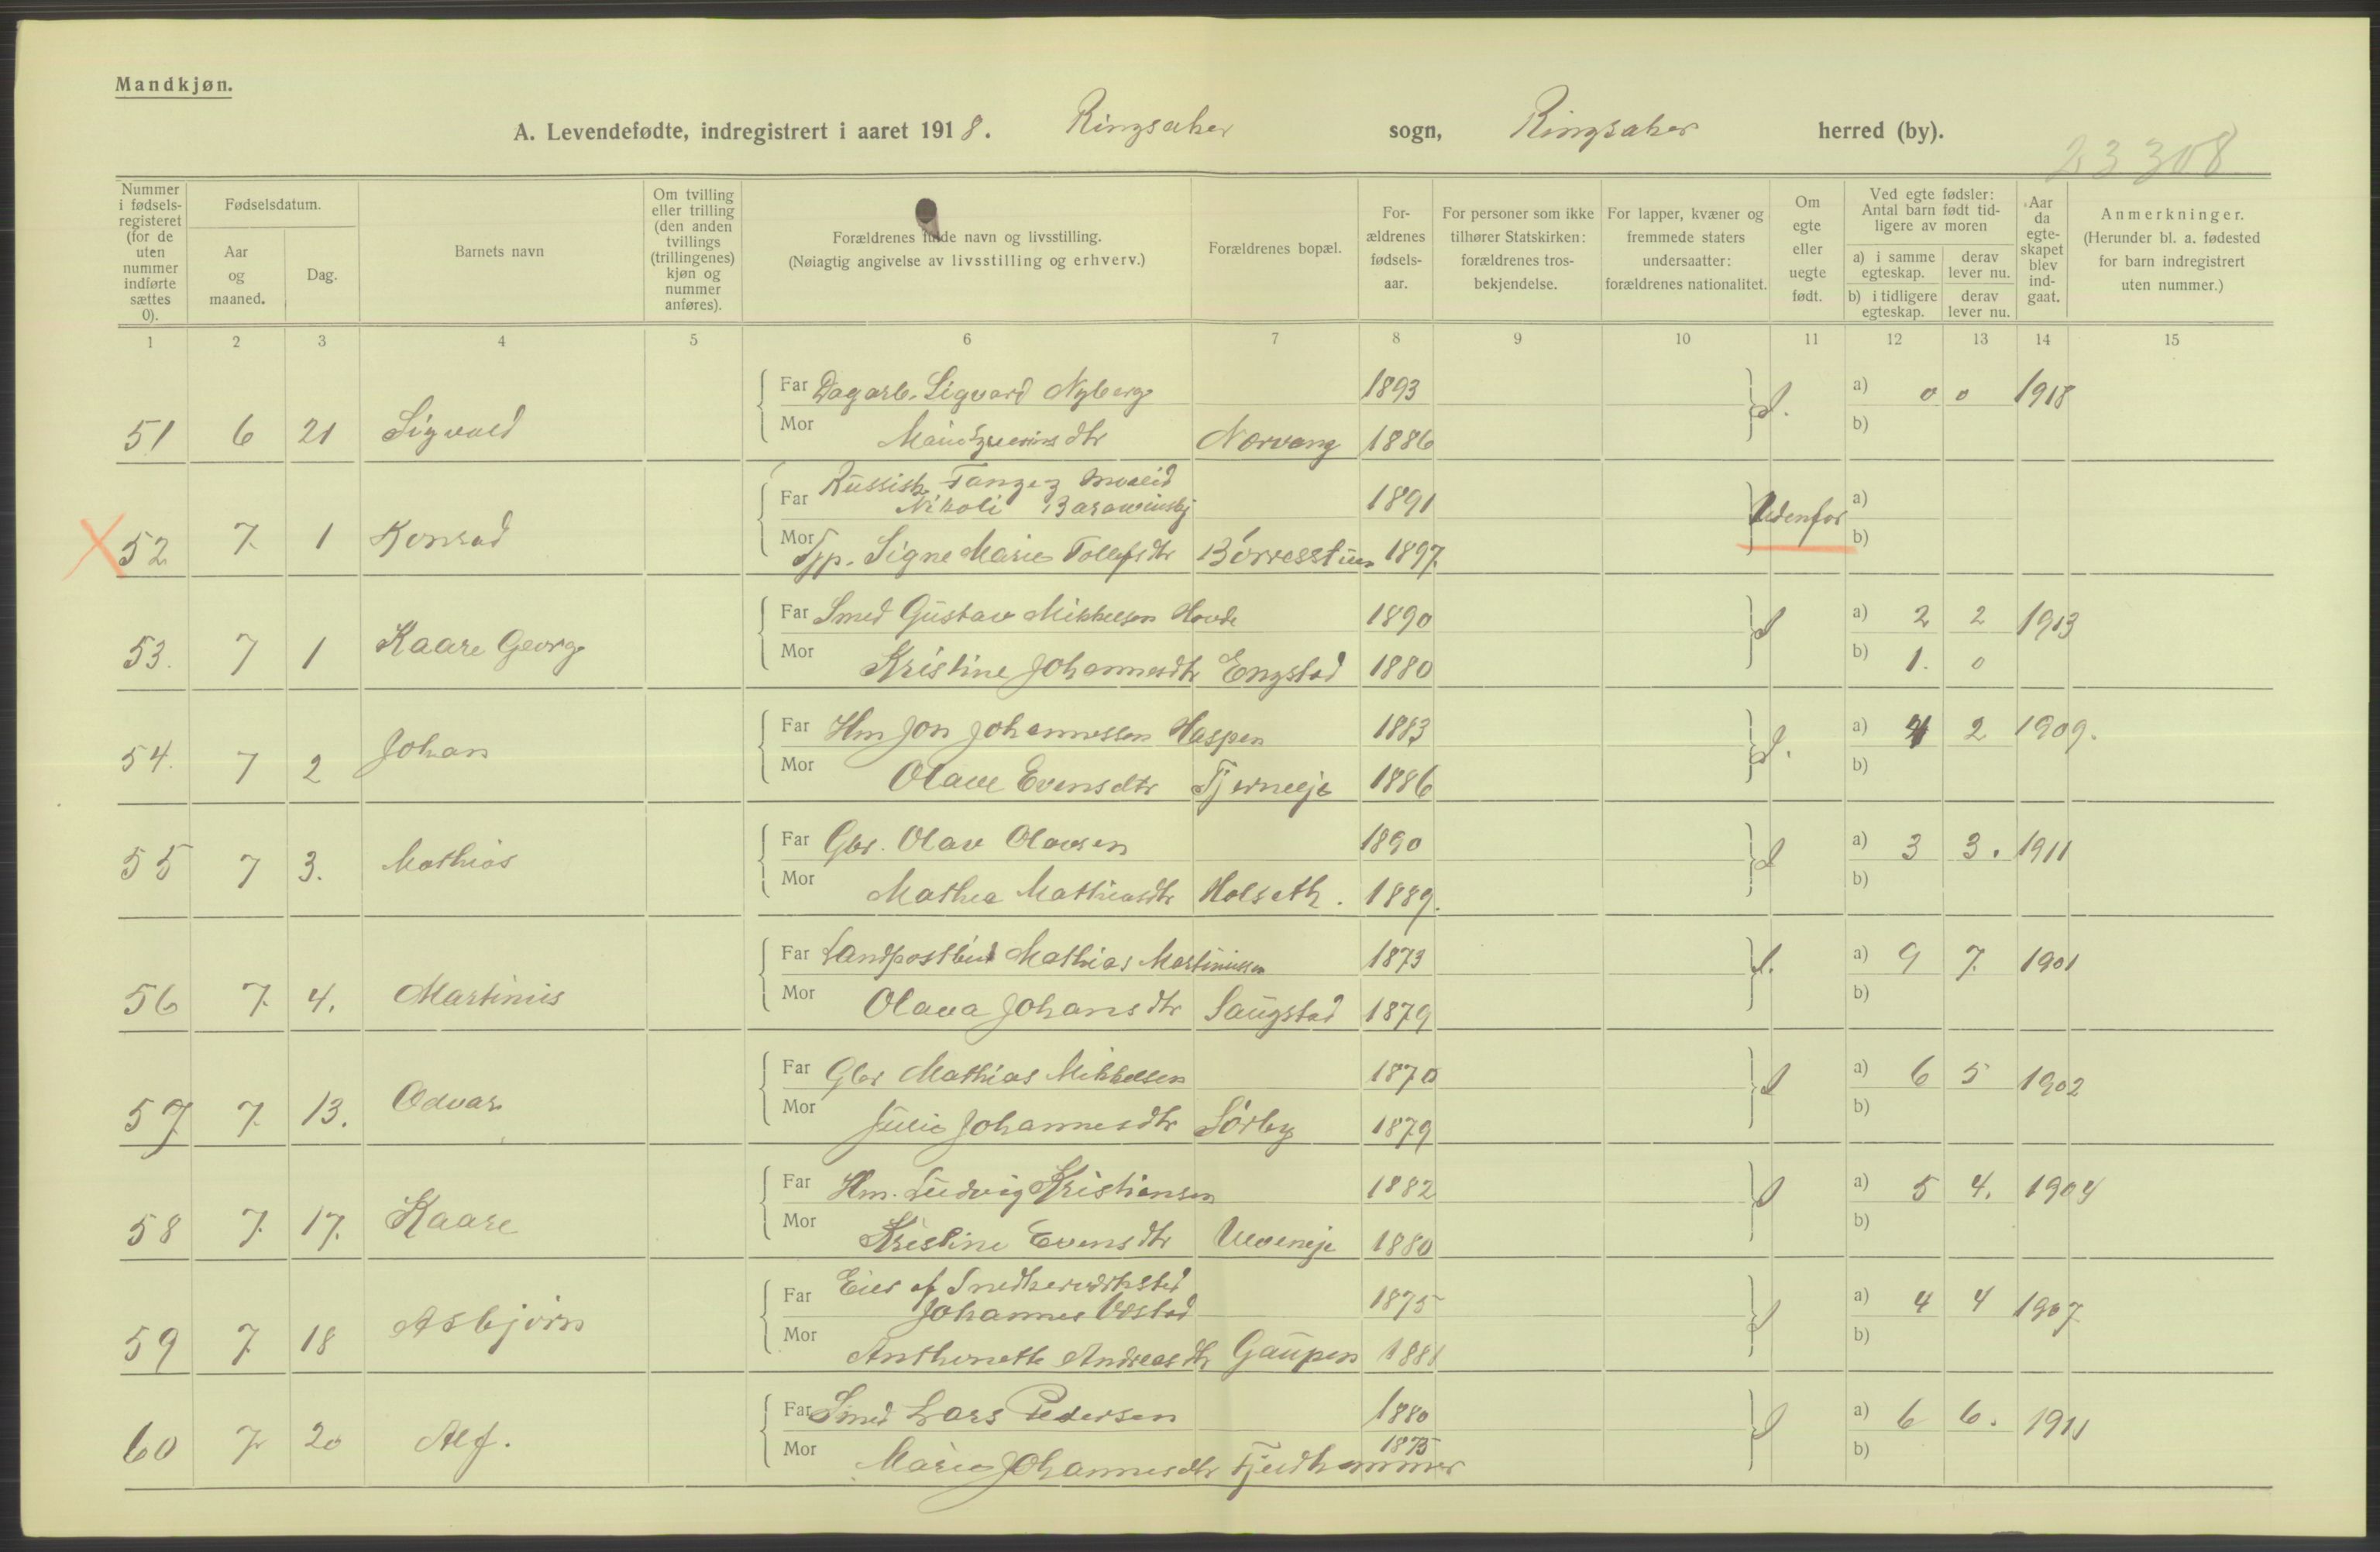 Mandkjøn.
A. Levendefødte, indregistrert i aaret 1918. Ringsaker sogn, Ringsaker herred (by).
23308
Nummer i fødselsregisteret (for de uten nummer indførte sættes 0).
Fødselsdatum.
Aar og maaned.
Dag.
Barnets navn
Om tvilling eller trilling (den anden tvillings (trillingenes) kjøn og nummer anføres).
Forældrenes fulde navn og livsstilling.
(Nøiagtig angivelse av livsstilling og erhverv.)
Forældrenes bopæl.
For-ældrenes fødsels-aar.
For personer som ikke tilhører Statskirken: forældrenes tros-bekjendelse.
For lapper, kvæner og fremmede staters undersaatter: forældrenes nationalitet.
Om egte eller uegte født.
Ved egte fødsler: Antal barn født tid-ligere av moren
a) i samme egteskap.
derav lever nu.
b) i tidligere egteskap.
derav lever nu.
Aar da egte-skapet blev ind-gaat.
Anmerkninger.
(Herunder bl. a. fødested for barn indregistrert uten nummer.)
1 2 3 4 5 6 7 8 9 10 11 12 13 14 15
Far Dagarb. Sigvard Nyberg 1893 a) 0 0 1918
51 6 21 Sigvald Mor Norvang 1886 b)
Far Russisk
Nikoli 1891 Udenfor a)
52 7 1 Konrad Mor Tjp. Signe Marie Tollefsdtr Børresstuen 1897. b)
Far Smed Gustav Mikkelsen Hovde 1890 a) 2 2 1913
53. 7 1 Kaare Georg Mor Kristine Johannesdtr Engstad 1880 b) 1. 0
Far Hm Jon Johannessen Haspen 1883 a) 4 2 1909.
54. 7 2 Johan Mor Olave Evensdtr Tjerneeje 1886 b)
Far Gbr. Olav Olavsen 1890 a) 3 3. 1911
55 7 3. Mathias Mor Mathea Mathiasdtr Holseth. 1889. b)
Far Landpostbud Mathias Martinussen 1873 a) 9 7. 1901
56 7. 4. Martinius Mor Olava Johansdtr Saugstad 1879 b)
Far Gbr Mathias Mikkelsen 1870 a) 6 5 1902
57 7. 13. Odvar Mor Julie Johannesdtr Sørby 1879 b)
Far Hm. Ludvig Kristiansen 1882 a) 5 4. 1904
58 7. 17. Kaare Mor Kristine Evensdtr 1880 b)
Far Eier af Snedkerverksted
Johannes 1875 a) 4 4 1907
59 7. 18 Asbjørn Mor Anthonette Andreasdtr Gaupen 1881 b)
Far Smed Lars Pedersen 1880 a) 6 6. 1911
60 7. 20 Alf. Mor Marie Johannesdtr Fjeldhammer 1875 b)